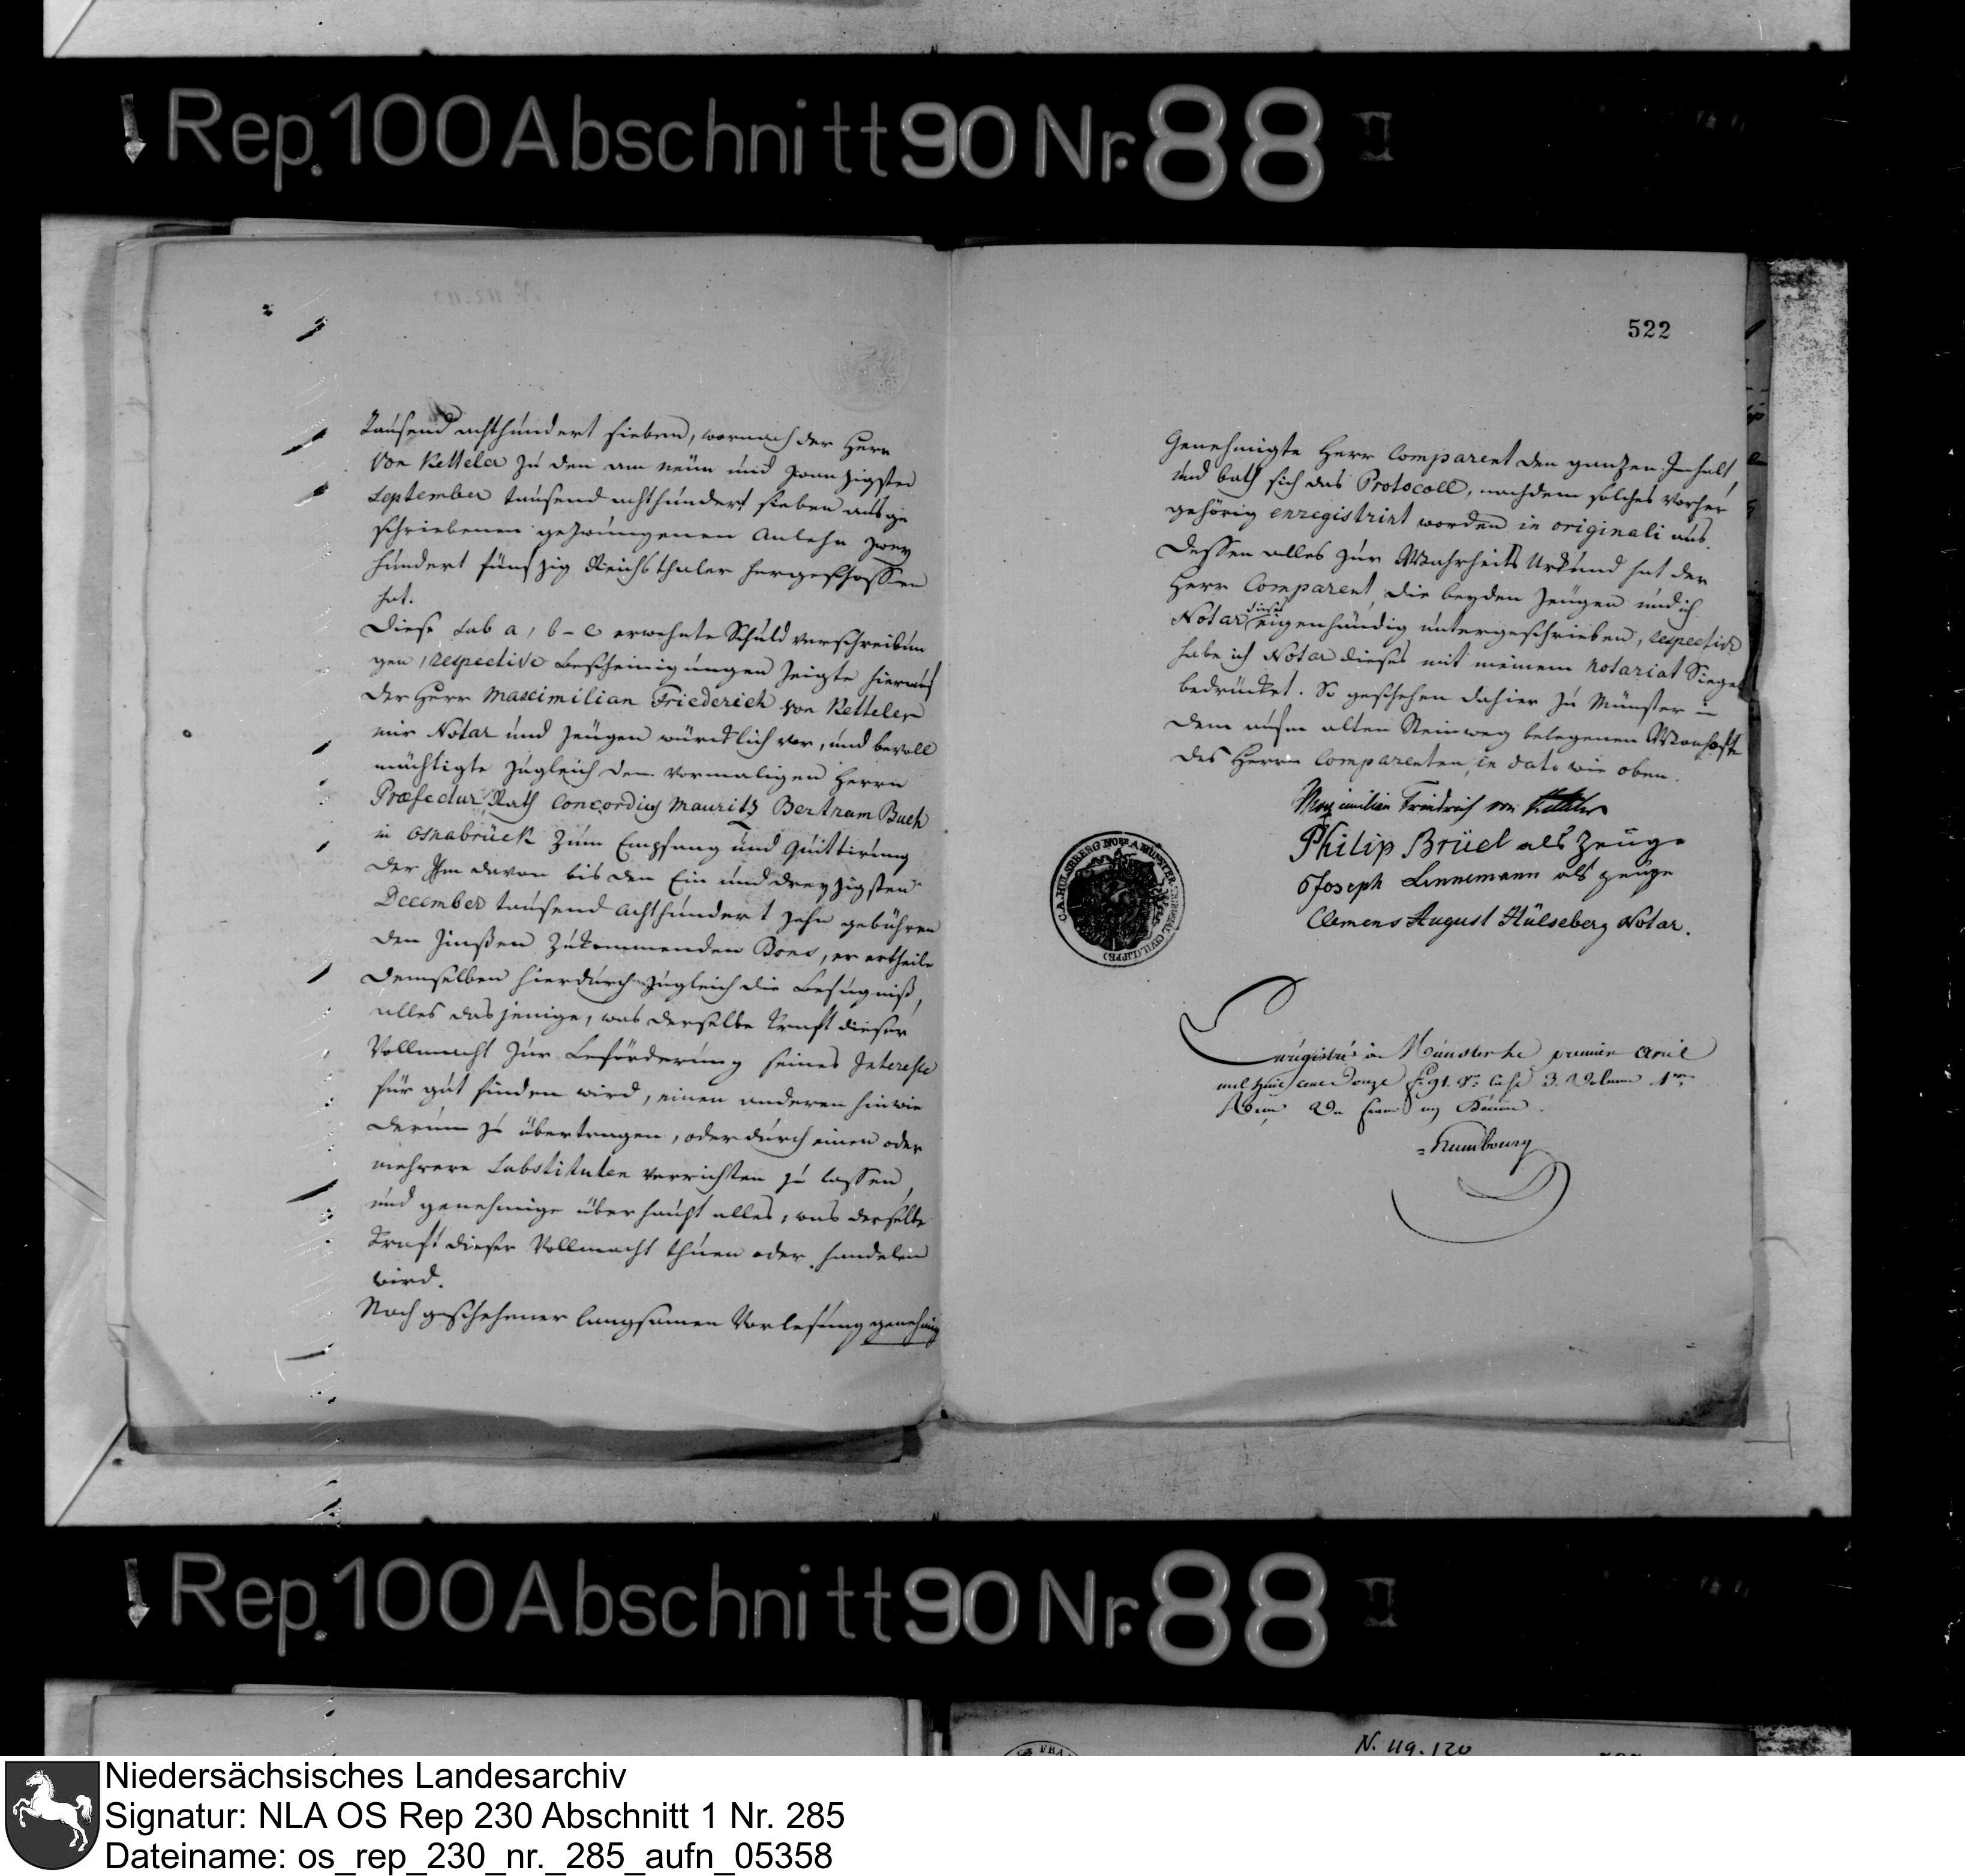 Rep. 100 Abschnitt 90 Nr. 88 II
522
Tausend achthundert sieben, wornach der Herr
Von Ketteler zu den am neün und zwanzigsten
September tausend achthundert sieben ausge
schriebenen gezwungenen Anlehn zwey
hundert fünfzig Reichsthaler hergeschossen
hat.
Diese sub a, b - c erwehnte Schuldverschreibun
gen, respective Bescheinigungen zeigte hierauf
der Herr Maximilian Friederich von Ketteler
mir Notar und Zeugen würcklich vor, und bevoll
mächtigte zugleich den vormaligen Herrn
Præfectur Rath Concordius Mauritz Bertram Buch
in Osnabrück zum Empfang und Quittirung
der Ihm davon bis den Ein und dreyzigsten
December tausend achthundert zehn gebühren
den Zinßen zukommenden Bons, er ertheile
demselben hierdurch zugleich die Befugniß,
alles dasjenige, was derselbe Kraft dieser
Vollmacht zur Beförderung seines Interesse
für gut finden wird, einen anderen hinwie
derum zu übertragen, oder durch einen oder
mehrere Substituten verrichten zu lassen,
und genehmige überhaupt alles, was derselbe
Kraft dieser Vollmacht thuen oder handelen
wird.
Nach geschehener langsamen Vorlesung genehmig
Genehmigte Herr Comparent den ganzen Inhalt,
und bath sich das Protocoll, nachdem solches vorher
gehörig enregistrirt worden in originali aus.
Dessen alles zur Wahrheits Urkund hat der
Herr Comparent, die beyden Zeugen und ich
Notar dieses eigenhändig untergeschrieben, respective
habe ich Notar dieses mit meinem Notariat Siegel
bedrücket. So geschehen dahier zu Münster in
dem aufm alten Steinweg belegenen Wonhofte
des Herrn Comparenten, in dato wie oben.
Maximilian Friedrich von Ketteler
Philip Brüel als Zeuge
Joseph Linnemann als zeuge
Clemens August Hülseberg Notar.
C.A. HULSEBERG NOT. A MUNSTER. TRIBUNAL CIVIL (LIPPE)
Enregistré à Münster le premier avril
mil huit cent douze f. 91. v. case 3. Volume 1er
Reçu un franc dix
Rep. 100 Abschnitt 90 Nr. 88 II
N. 119. 120
Niedersächsisches Landesarchiv
Signatur: NLA OS Rep 230 Abschnitt 1 Nr. 285
Dateiname: os_rep_230_nr._285_aufn_05358